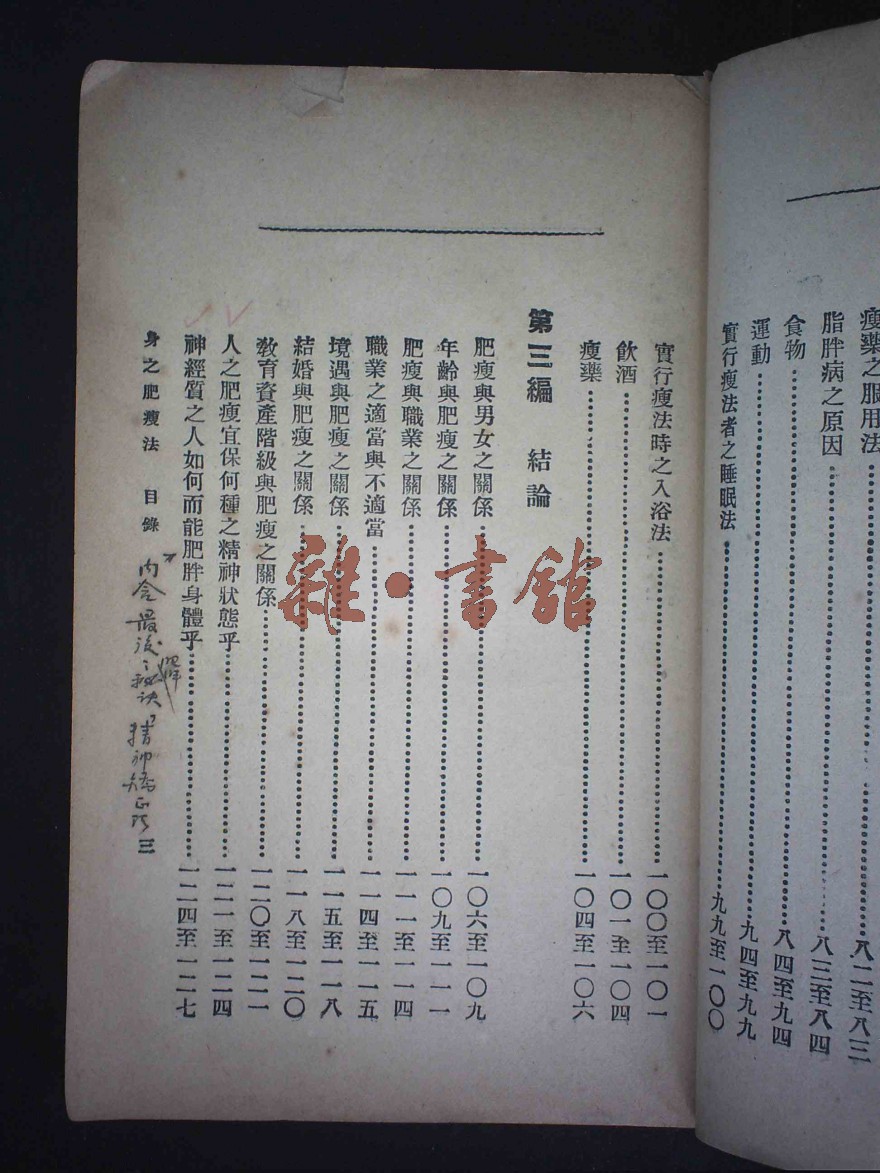 瘦藥之服用法……八二至八三
脂胖病之原因……八三至八四
食物……八四至九四
運動……九四至九九
實行瘦法者之睡眠法……九九至一〇〇
實行瘦法時之入浴法……一〇〇至一〇一
飲酒……一〇一至一〇四
瘦藥……一〇四至一〇六
第三編 結論
肥瘦與男女之關係……一〇六至一〇九
年齡與肥瘦之關係……一〇九至一一一
肥瘦與職業之關係……一一一至一一四
職業之適當與不適當……一一四至一一五
境遇與肥瘦之關係……一一五至一一八
結婚與肥瘦之關係……一一八至一二〇
教育資產階級與肥瘦之關係……一二〇至一二一
人之肥瘦宜保何種之精神狀態乎……一二一至一二四
神經質之人如何而能肥胖身體乎……一二四至一二七
身之肥瘦法 目錄
三
內含最後之秘訣 精神矯正
雜·書館